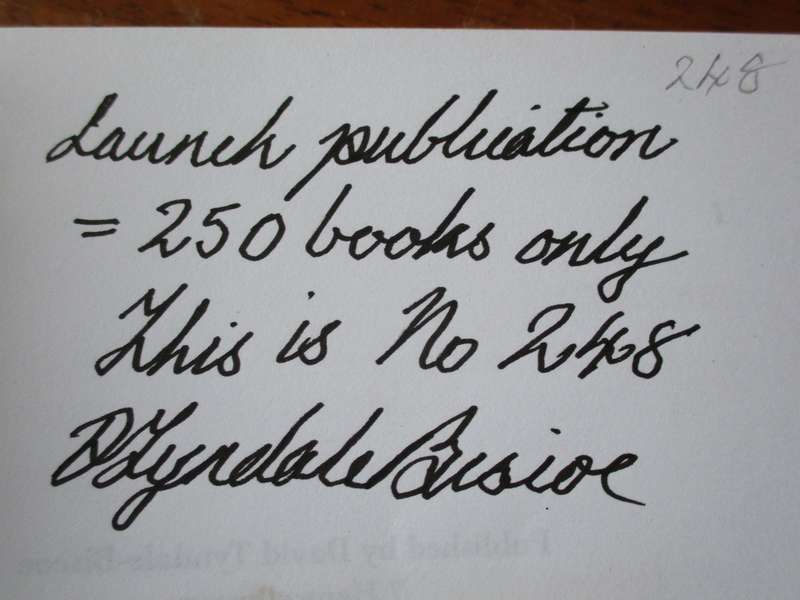 248
Launch publication
= 250 books only
This is No 248
D Tyndale Biscoe
Published by David Tyndale-Biscoe